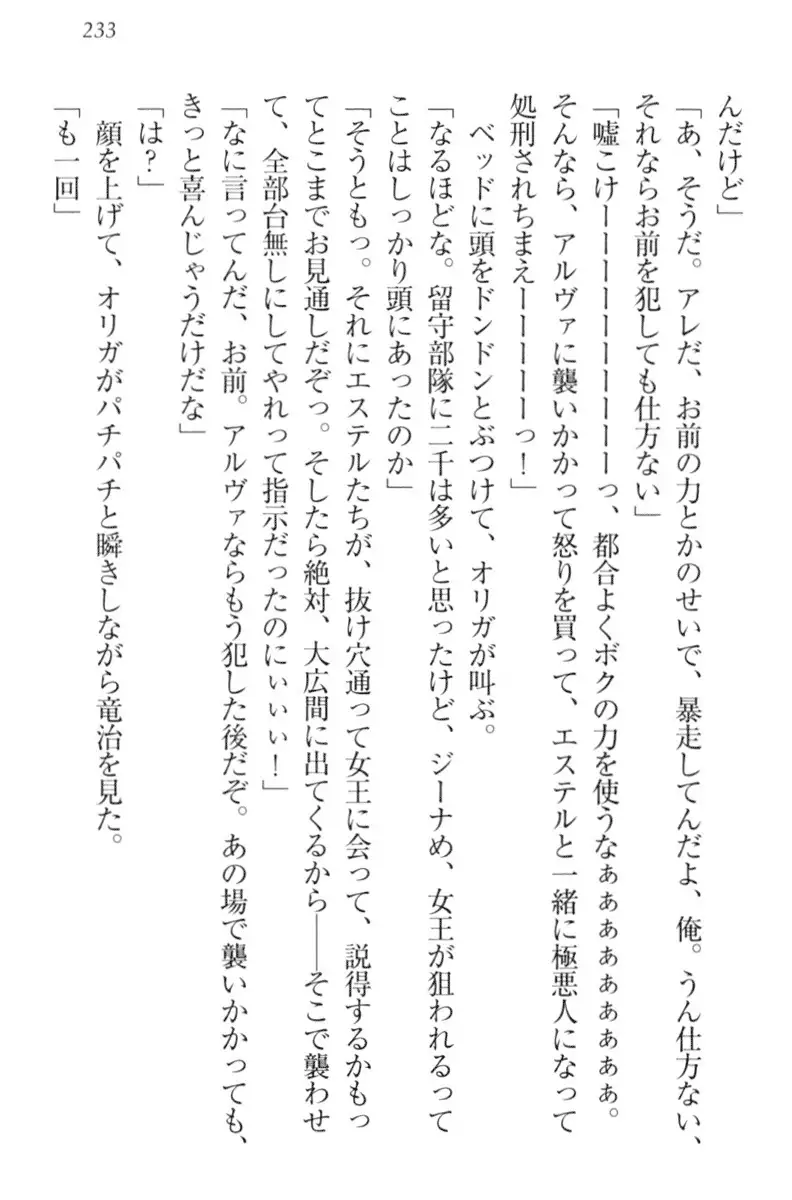 233
んだけど」
「あ、そうだ。アレだ、お前の力とかのせいで、暴走してんだよ、俺。うん仕方ない、
それならお前を犯しても仕方ない」
「嘘こけーーーーーーーーーーっ、都合よくボクの力を使うなぁぁぁぁぁぁぁぁぁ。
そんなら、アルヴァに襲いかかって怒りを買って、エステルと一緒に極悪人になって
処刑されちまえーーーーーっ！」
ベッドに頭をドンドンとぶつけて、オリガが叫ぶ。
「なるほどな。留守部隊に二千は多いと思ったけど、ジーナめ、女王が狙われるって
ことはしっかり頭にあったのか」
「そうともっ。それにエステルたちが、抜け穴通って女王に会って、説得するかもっ
てとこまでお見通しだぞっ。そしたら絶対、大広間に出てくるから――そこで襲わせ
て、全部台無しにしてやれって指示だったのにぃぃぃ！」
「なに言ってんだ、お前。アルヴァならもう犯した後だぞ。あの場で襲いかかっても、
きっと喜んじゃうだけだな」
「は？」
顔を上げて、オリガがパチパチと瞬きしながら竜治を見た。
「も一回」